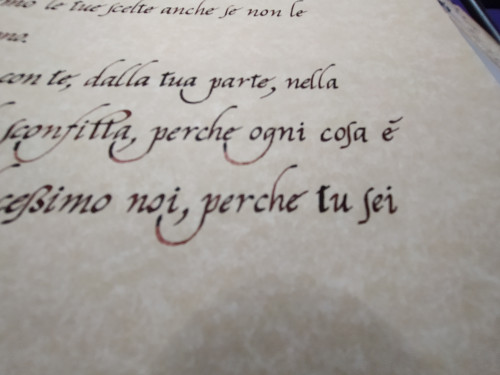 le tue scelte anche se non le
con te, dalla tua parte, nella
sconfitta, perche ogni cosa è
noi, perche tu sei